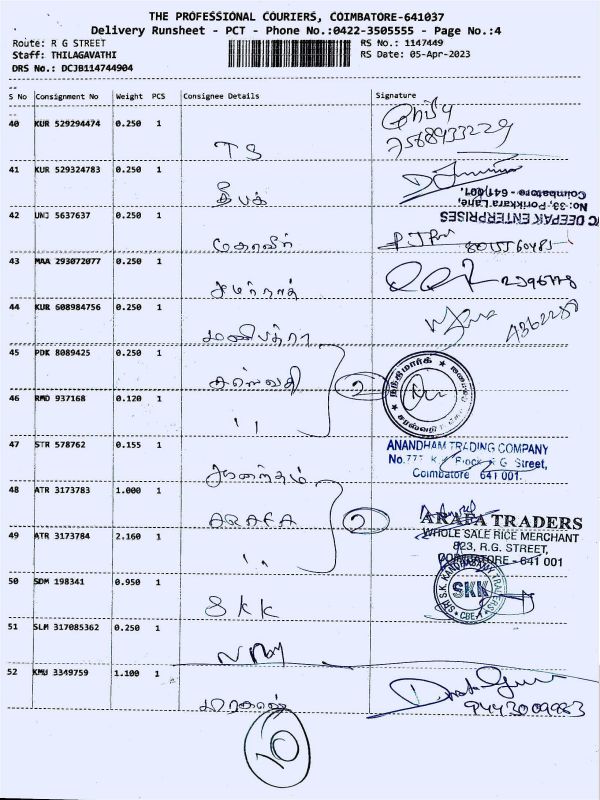 THE PROFESSIONAL COURIERS, COIMBATORE-641037
Delivery Runsheet - PCT - Phone No.:0422-3505555 - Page No.:4
Route: R G STREET
RS No.: 1147449
Staff: THILAGAVATHI
RS Date: 05-Apr-2023
DRS No.: DCJB114744904
S No Consignment No Weight PCS Consignee Details Signature
40 KUR 529294474 0.250 1
TS
41 KUR 529324783 0.250 1
தீபக்
DEEPAK ENTERPRISES
No: 33, Porikkara Lane,
Coimbatore - 641001.
42 UNJ 5637637 0.250 1
மகாவீர்
43 MAA 293072077 0.250 1
44 KUR 608984756 0.250 1
மணிபத்ரா
45 PDK 8089425 0.250 1
சரஸ்வதி
2
46 RMD 937168 0.120 1
"
47 STR 578762 0.155 1
ANANDHAM TRADING COMPANY
R.G. Street,
Coimbatore 641 001.
48 ATR 3173783 1.000 1
ARAFA
2
49 ATR 3173784 2.160 1
"
ARAFA TRADERS
WHOLE SALE RICE MERCHANT
823, R.G. STREET,
COIMBATORE - 641 001
50 SDM 198341 0.950 1
SKK
SKK
CBE
51 SLM 317085362 0.250 1
52 KMU 3349759 1.100 1
9443009983
10